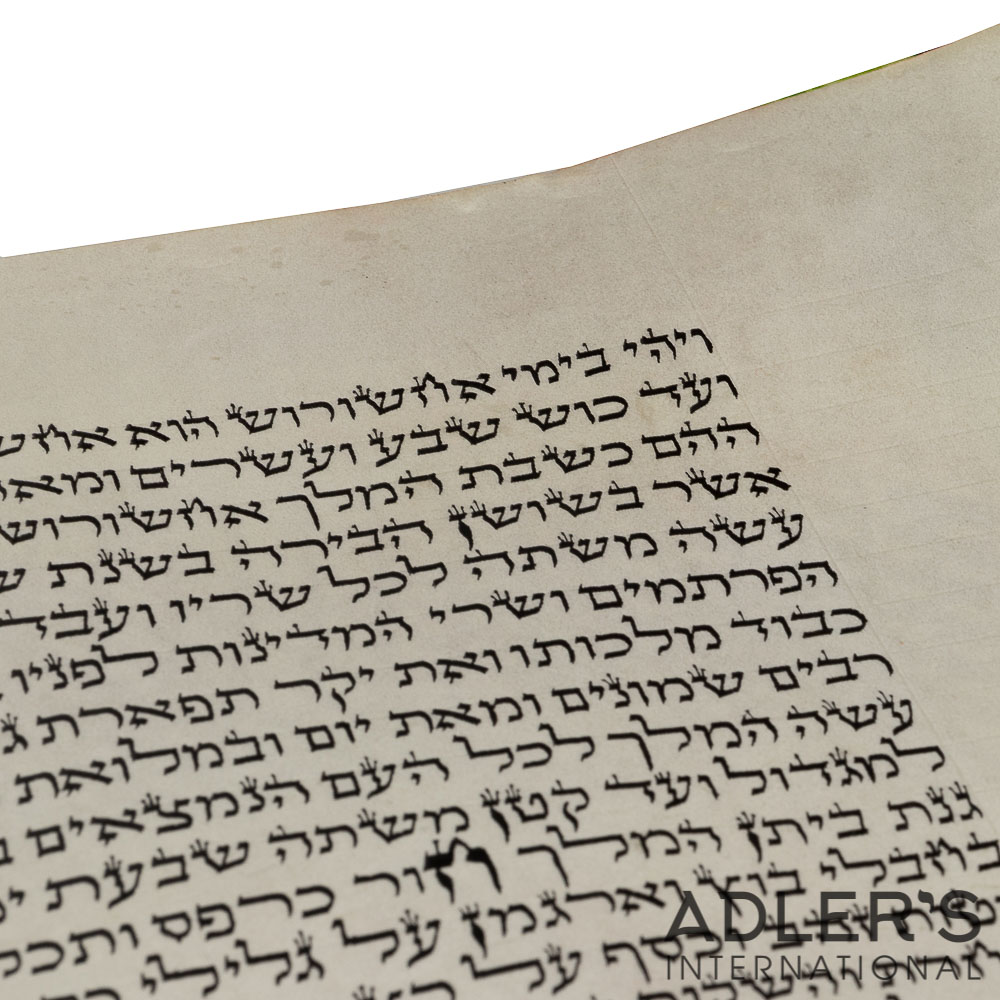 ויהי בימי אחשורוש הוא
ועד כוש שבע ועשרים
ההם כשבת המלך אחשורוש
אשר בשושן הבירה בשנת
עשה משתה לכל שריו
הפרתמים ושרי המדינות לפניו
כבוד מלכותו ואת יקר תפארת
רבים שמונים ומאת יום ובמלואת
עשה המלך לכל העם הנמצאים
למגדול ועד קטן משתה שבעת
גנת ביתן המלך חור כרפס
בחבלי בוץ וארגמן על גלילי
על
ADLER'S
INTERNATIONAL